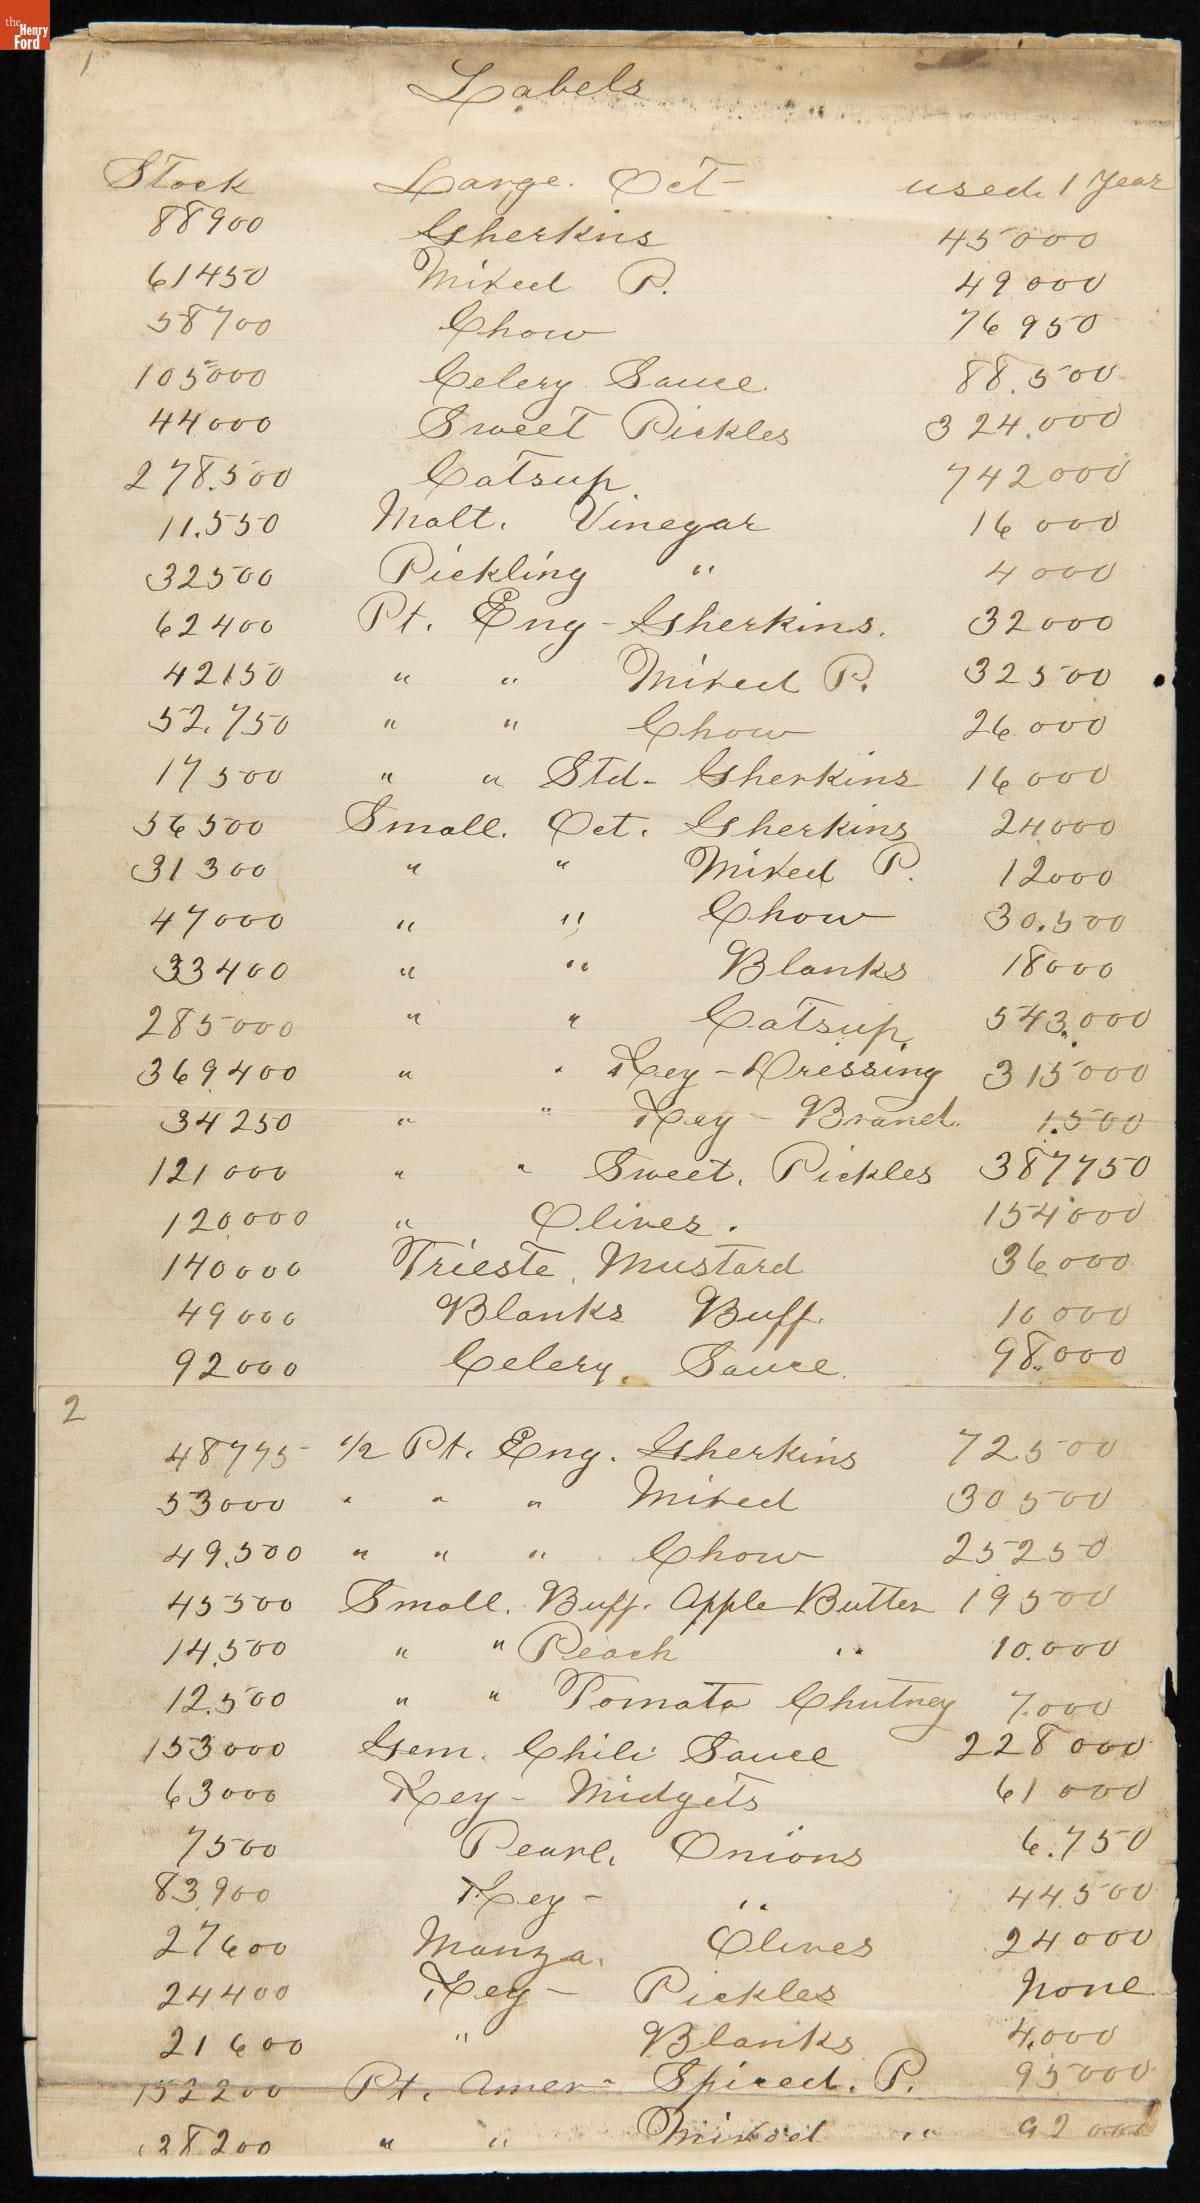 the
Henry
Ford
1
Labels
Stock Large. Oct used. 1 Year
88900 Gherkins 45000
61450 Mixed P. 49000
58700 Chow 76950
105000 Celery Sauce. 88.500
44000 Sweet Pickles 324.000
278.500 Catsup 742000
11.550 Malt. Vinegar 16000
32500 Pickling " 4000
62400 Pt. Eng - Gherkins. 32000
42150 " " Mixed P. 32500
52.750 " " Chow 26000
17500 " " Std - Gherkins 16000
56500 Small. Oct. Gherkins 24000
31300 " " Mixed P. 12000
47000 " " Chow 30.500
33400 " " Blanks 18000
285000 " " Catsup 543.000
369400 " " Key - Dressing 315000
34250 " " Key - Brand. 1.500
121000 " " Sweet. Pickles 387750
120000 " Olives. 154000
140000 Trieste. Mustard 36000
49000 Blanks Buff. 10000
92000 Celery. Sauce. 98.000
2
48775 1/2 Pt. Eng. Gherkins 72500
53000 " " " Mixed 30500
49.500 " " " Chow 25250
45500 Small. Buff. Apple Butter 19500
14.500 " " Peach " 10.000
12.500 " " Tomato Chutney 7.000
153000 Gem. Chili Sauce 228000
63000 Key - Midgets 61000
7500 Pearl. Onions 6.750
83900 Key - " 44.500
27600 Manza. Olives 24000
24400 Key - Pickles None
21600 " Blanks 4.000
152200 Pt. Amer - Spiced. P. 95000
38200 " " Mixed " 92000